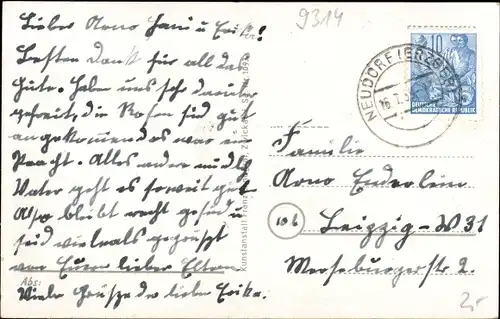 9314
Lieber Arno Hani u Erika!
Besten Dank für all das
Gute. Haben uns sehr darüber
gefreut, die Rosen sind gut
angekommen das war ein
Pracht. Alles andere mündl.
Vater geht es soweit gut
Also bleibt recht gesund u
seid vielmals gegrüsst
von Euren lieben Eltern
Viele Grüsse der lieben Erika.
Abs:
Kunstanstalt Franz
10
DEUTSCHE
DEMOKRATISCHE REPUBLIK
NEUDORF (ERZGEB)
16.7.5
Familie
Arno Enderlein
10b
Leipzig-W31
Merseburgerstr 2.